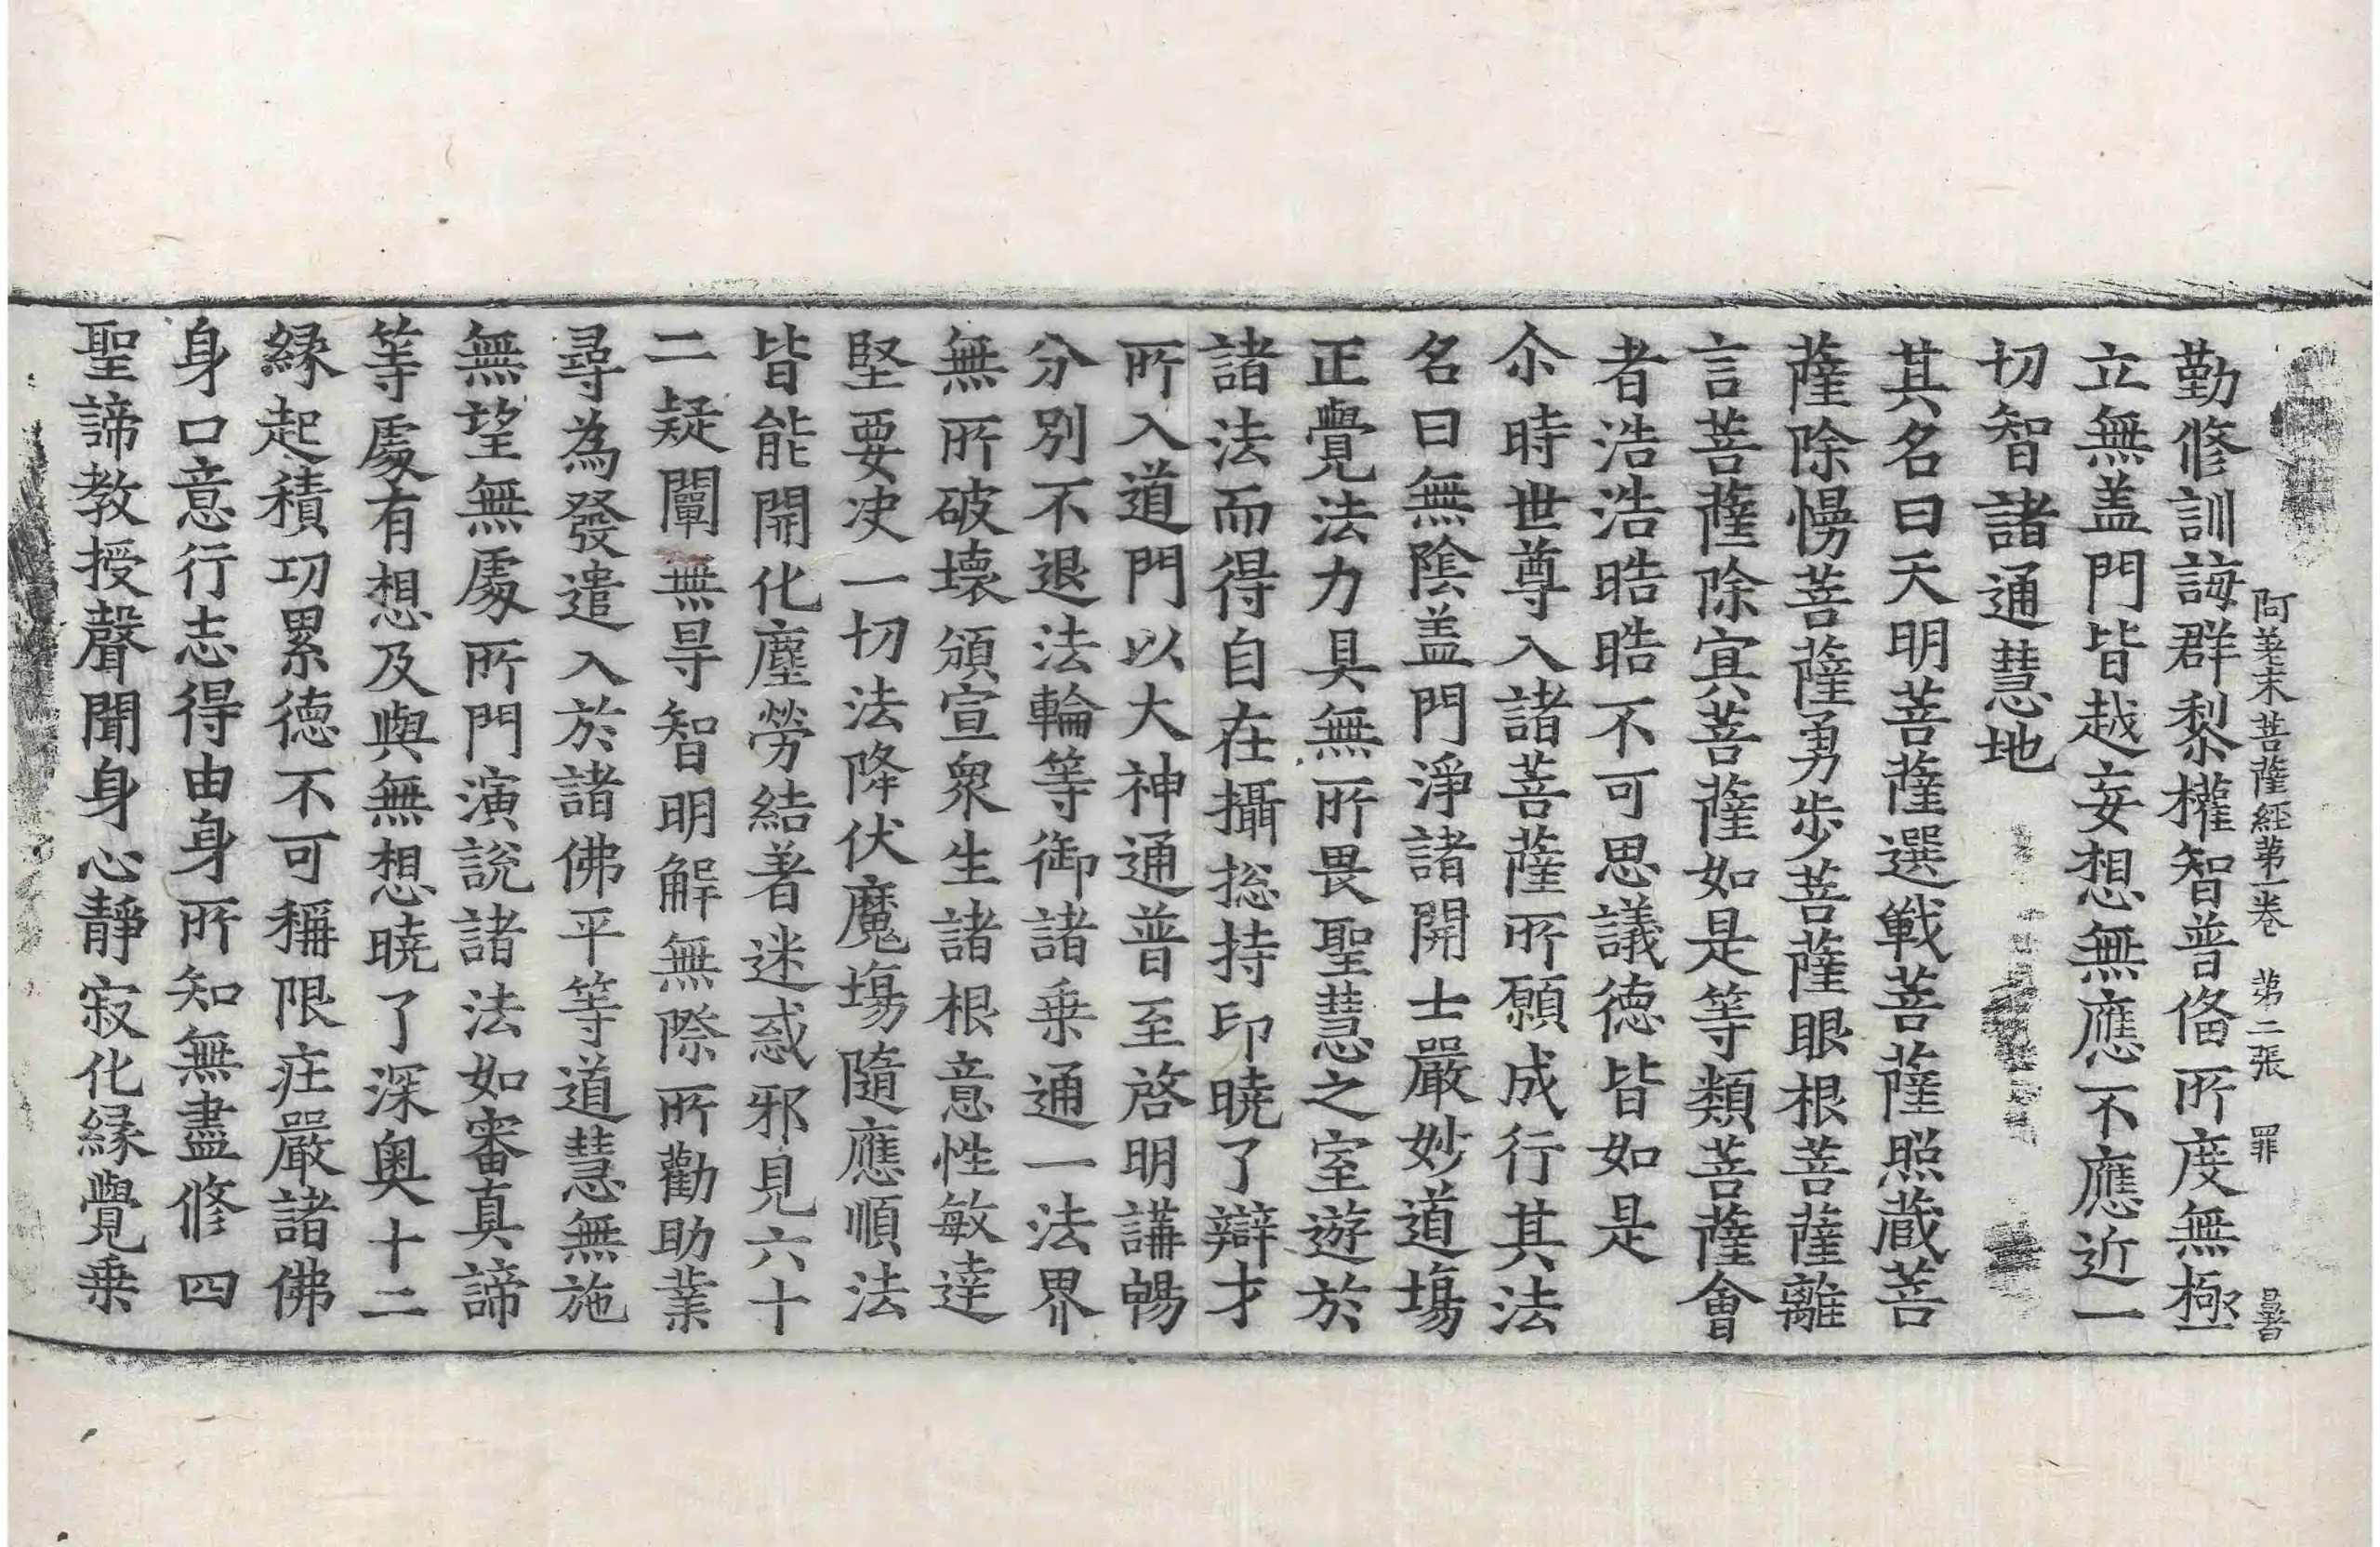 阿差末菩薩經第一卷 第二張 罪
勤修訓誨群黎權智普俻所度無極
立無盖門皆越妄想無應不應近一
切智諸通慧地
其名曰天明菩薩選戰菩薩照蔵菩
薩除慢菩薩勇步菩薩眼根菩薩離
言菩薩除㝠菩薩如是等類菩薩會
者浩浩晧晧不可思議德皆如是
尒時世尊入諸菩薩所願成行其法
名曰無陰盖門淨諸開士嚴妙道塲
正覺法力具無所畏聖慧之室遊於
諸法而得自在攝捴持印曉了辯才
所入道門以大神通普至啓明講暢
分別不退法輪等御諸乗通一法界
無所破壞頒宣衆生諸根意性敏達
堅要决一切法降伏魔塲隨應順法
皆能開化塵勞結著迷惑邪見六十
二疑闡無㝵智明解無際所勸助業
尋為發遣入於諸佛平等道慧無施
無望無處所門演說諸法如審真諦
等處有想及與無想曉了深奥十二
縁起積功累德不可稱限莊嚴諸佛
身口意行志得由身所知無盡修四
聖諦教授聲聞身心靜寂化縁覺乗